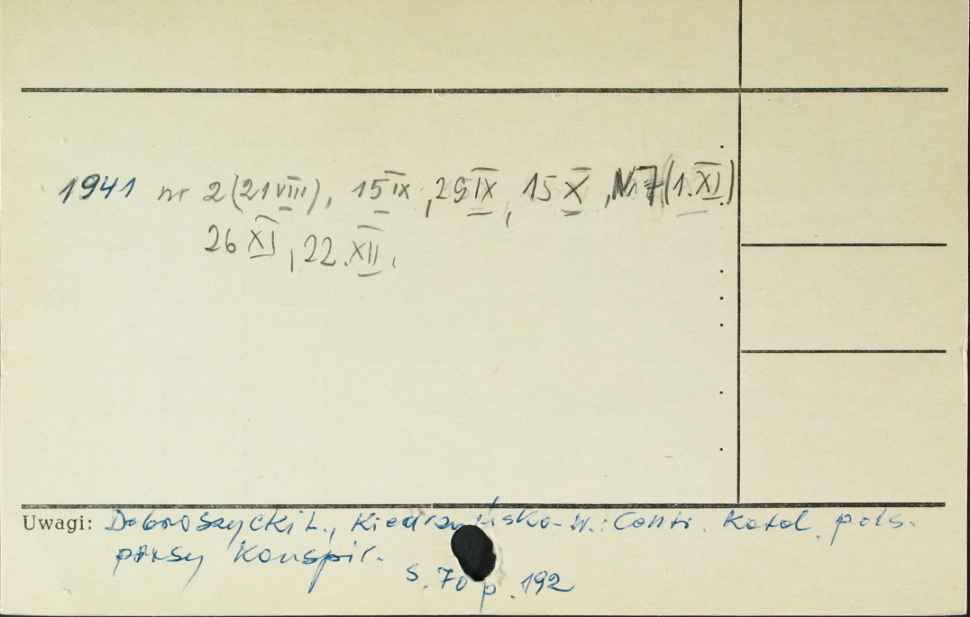 1941 nr 2 (21 VIII), 15 IX, 29 IX, 15 X, Nr 7 (1. XI)
26 XI, 22. XII.
Uwagi: Dobroszycki L., W.: Centr. Katal. pols.
prasy Konspir.
S. 70 p. 192